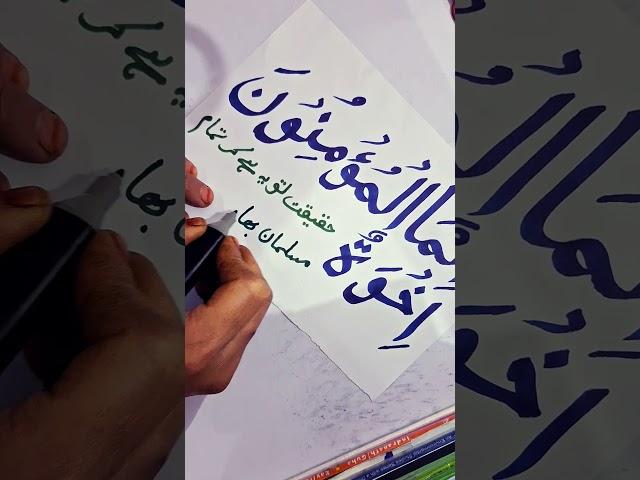 مَا الْمُؤْمِنُونَ
اِخْوَةٌ
حقیقت تو یہ ہے کہ تمام
مسلمان بھا
Indranath/Guha